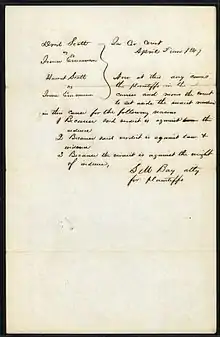 Dred Scott
vs
Irene Emerson
In Cir Court
April Term 1847
Harriet Scott
vs
Irene Emerson
Now at this day come
the plaintiffs in the
causes and move the court
to set aside the verdict
in this cause for the following reasons
1 Because said verdict is against the
evidence
2 Because said verdict is against law &
evidence
3 Because the verdict is against the weight
of evidence,
S M Bay atty
for plaintiffs